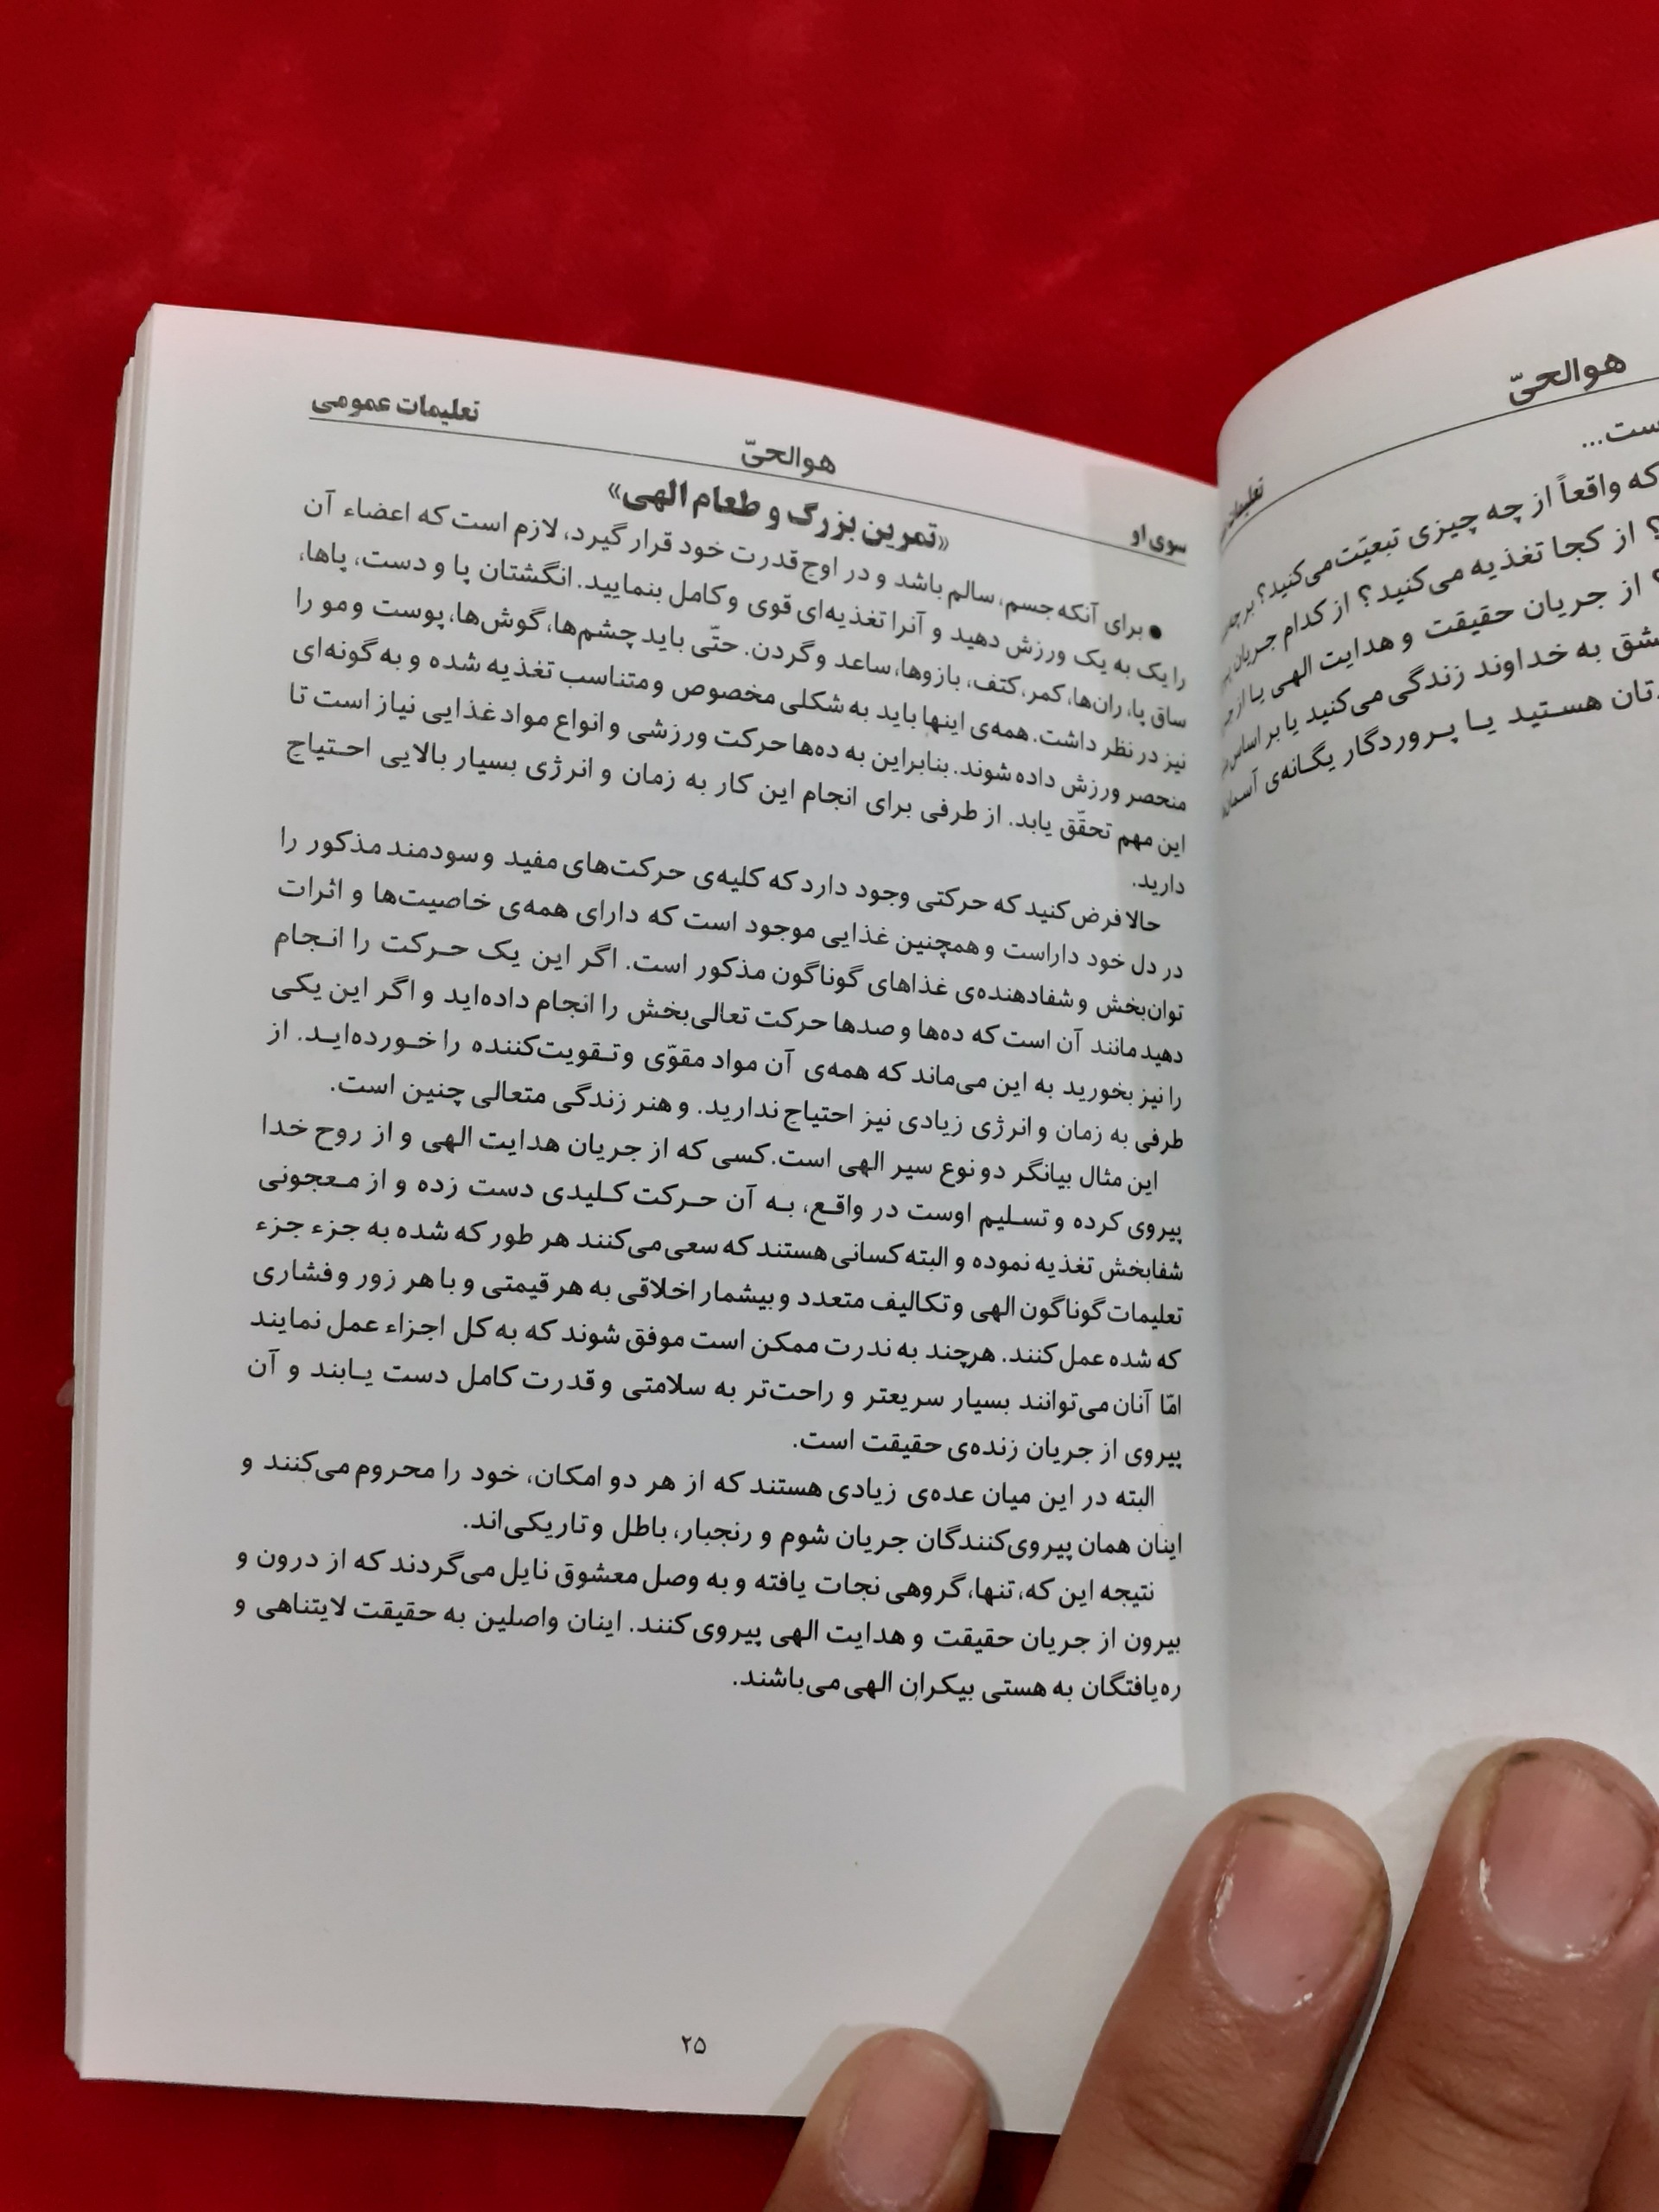 تعلیمات عمومی
هوالحیّ
سوی او
«تمرین بزرگ و طعام الهی»
● برای آنکه جسم، سالم باشد و در اوج قدرت خود قرار گیرد، لازم است که اعضاء آن
را یک به یک ورزش دهید و آنرا تغذیه‌ای قوی و کامل بنمایید. انگشتان پا و دست، پاها،
ساق پا، ران‌ها، کمر، کتف، بازوها، ساعد و گردن. حتّی باید چشم‌ها، گوش‌ها، پوست و مو را
نیز در نظر داشت. همه‌ی اینها باید به شکلی مخصوص و متناسب تغذیه شده و به گونه‌ای
منحصر ورزش داده شوند. بنابراین به ده‌ها حرکت ورزشی و انواع مواد غذایی نیاز است تا
این مهم تحقّق یابد. از طرفی برای انجام این کار به زمان و انرژی بسیار بالایی احتیاج
دارید.
حالا فرض کنید که حرکتی وجود دارد که کلیه‌ی حرکت‌های مفید و سودمند مذکور را
در دل خود داراست و همچنین غذایی موجود است که دارای همه‌ی خاصیت‌ها و اثرات
توان‌بخش و شفادهنده‌ی غذاهای گوناگون مذکور است. اگر این یک حرکت را انجام
دهید مانند آن است که ده‌ها و صدها حرکت تعالی‌بخش را انجام داده‌اید و اگر این یکی
را نیز بخورید به این می‌ماند که همه‌ی آن مواد مقوّی و تقویت‌کننده را خورده‌اید. از
طرفی به زمان و انرژی زیادی نیز احتیاج ندارید. و هنر زندگی متعالی چنین است.
این مثال بیانگر دو نوع سیر الهی است. کسی که از جریان هدایت الهی و از روح خدا
پیروی کرده و تسلیم اوست در واقع، به آن حرکت کلیدی دست زده و از معجونی
شفابخش تغذیه نموده و البته کسانی هستند که سعی می‌کنند هر طور که شده به جزء جزء
تعلیمات گوناگون الهی و تکالیف متعدد و بیشمار اخلاقی به هر قیمتی و با هر زور و فشاری
که شده عمل کنند. هرچند به ندرت ممکن است موفق شوند که به کل اجزاء عمل نمایند
امّا آنان می‌توانند بسیار سریعتر و راحت‌تر به سلامتی و قدرت کامل دست یابند و آن
پیروی از جریان زنده‌ی حقیقت است.
البته در این میان عده‌ی زیادی هستند که از هر دو امکان، خود را محروم می‌کنند و
اینان همان پیروی‌کنندگان جریان شوم و رنجبار، باطل و تاریکی‌اند.
نتیجه این که، تنها، گروهی نجات یافته و به وصل معشوق نایل می‌گردند که از درون و
بیرون از جریان حقیقت و هدایت الهی پیروی کنند. اینان واصلین به حقیقت لایتناهی و
ره‌یافتگان به هستی بیکران الهی می‌باشند.
۲۵
هوالحیّ
که واقعاً از چه چیزی تبعیّت می‌کنید؟
؟ از کجا تغذیه می‌کنید؟ از کدام جریان
؟ از جریان حقیقت و هدایت الهی یا از
به خداوند زندگی می‌کنید یا بر اساس
هستید یا پروردگار یگانه‌ی